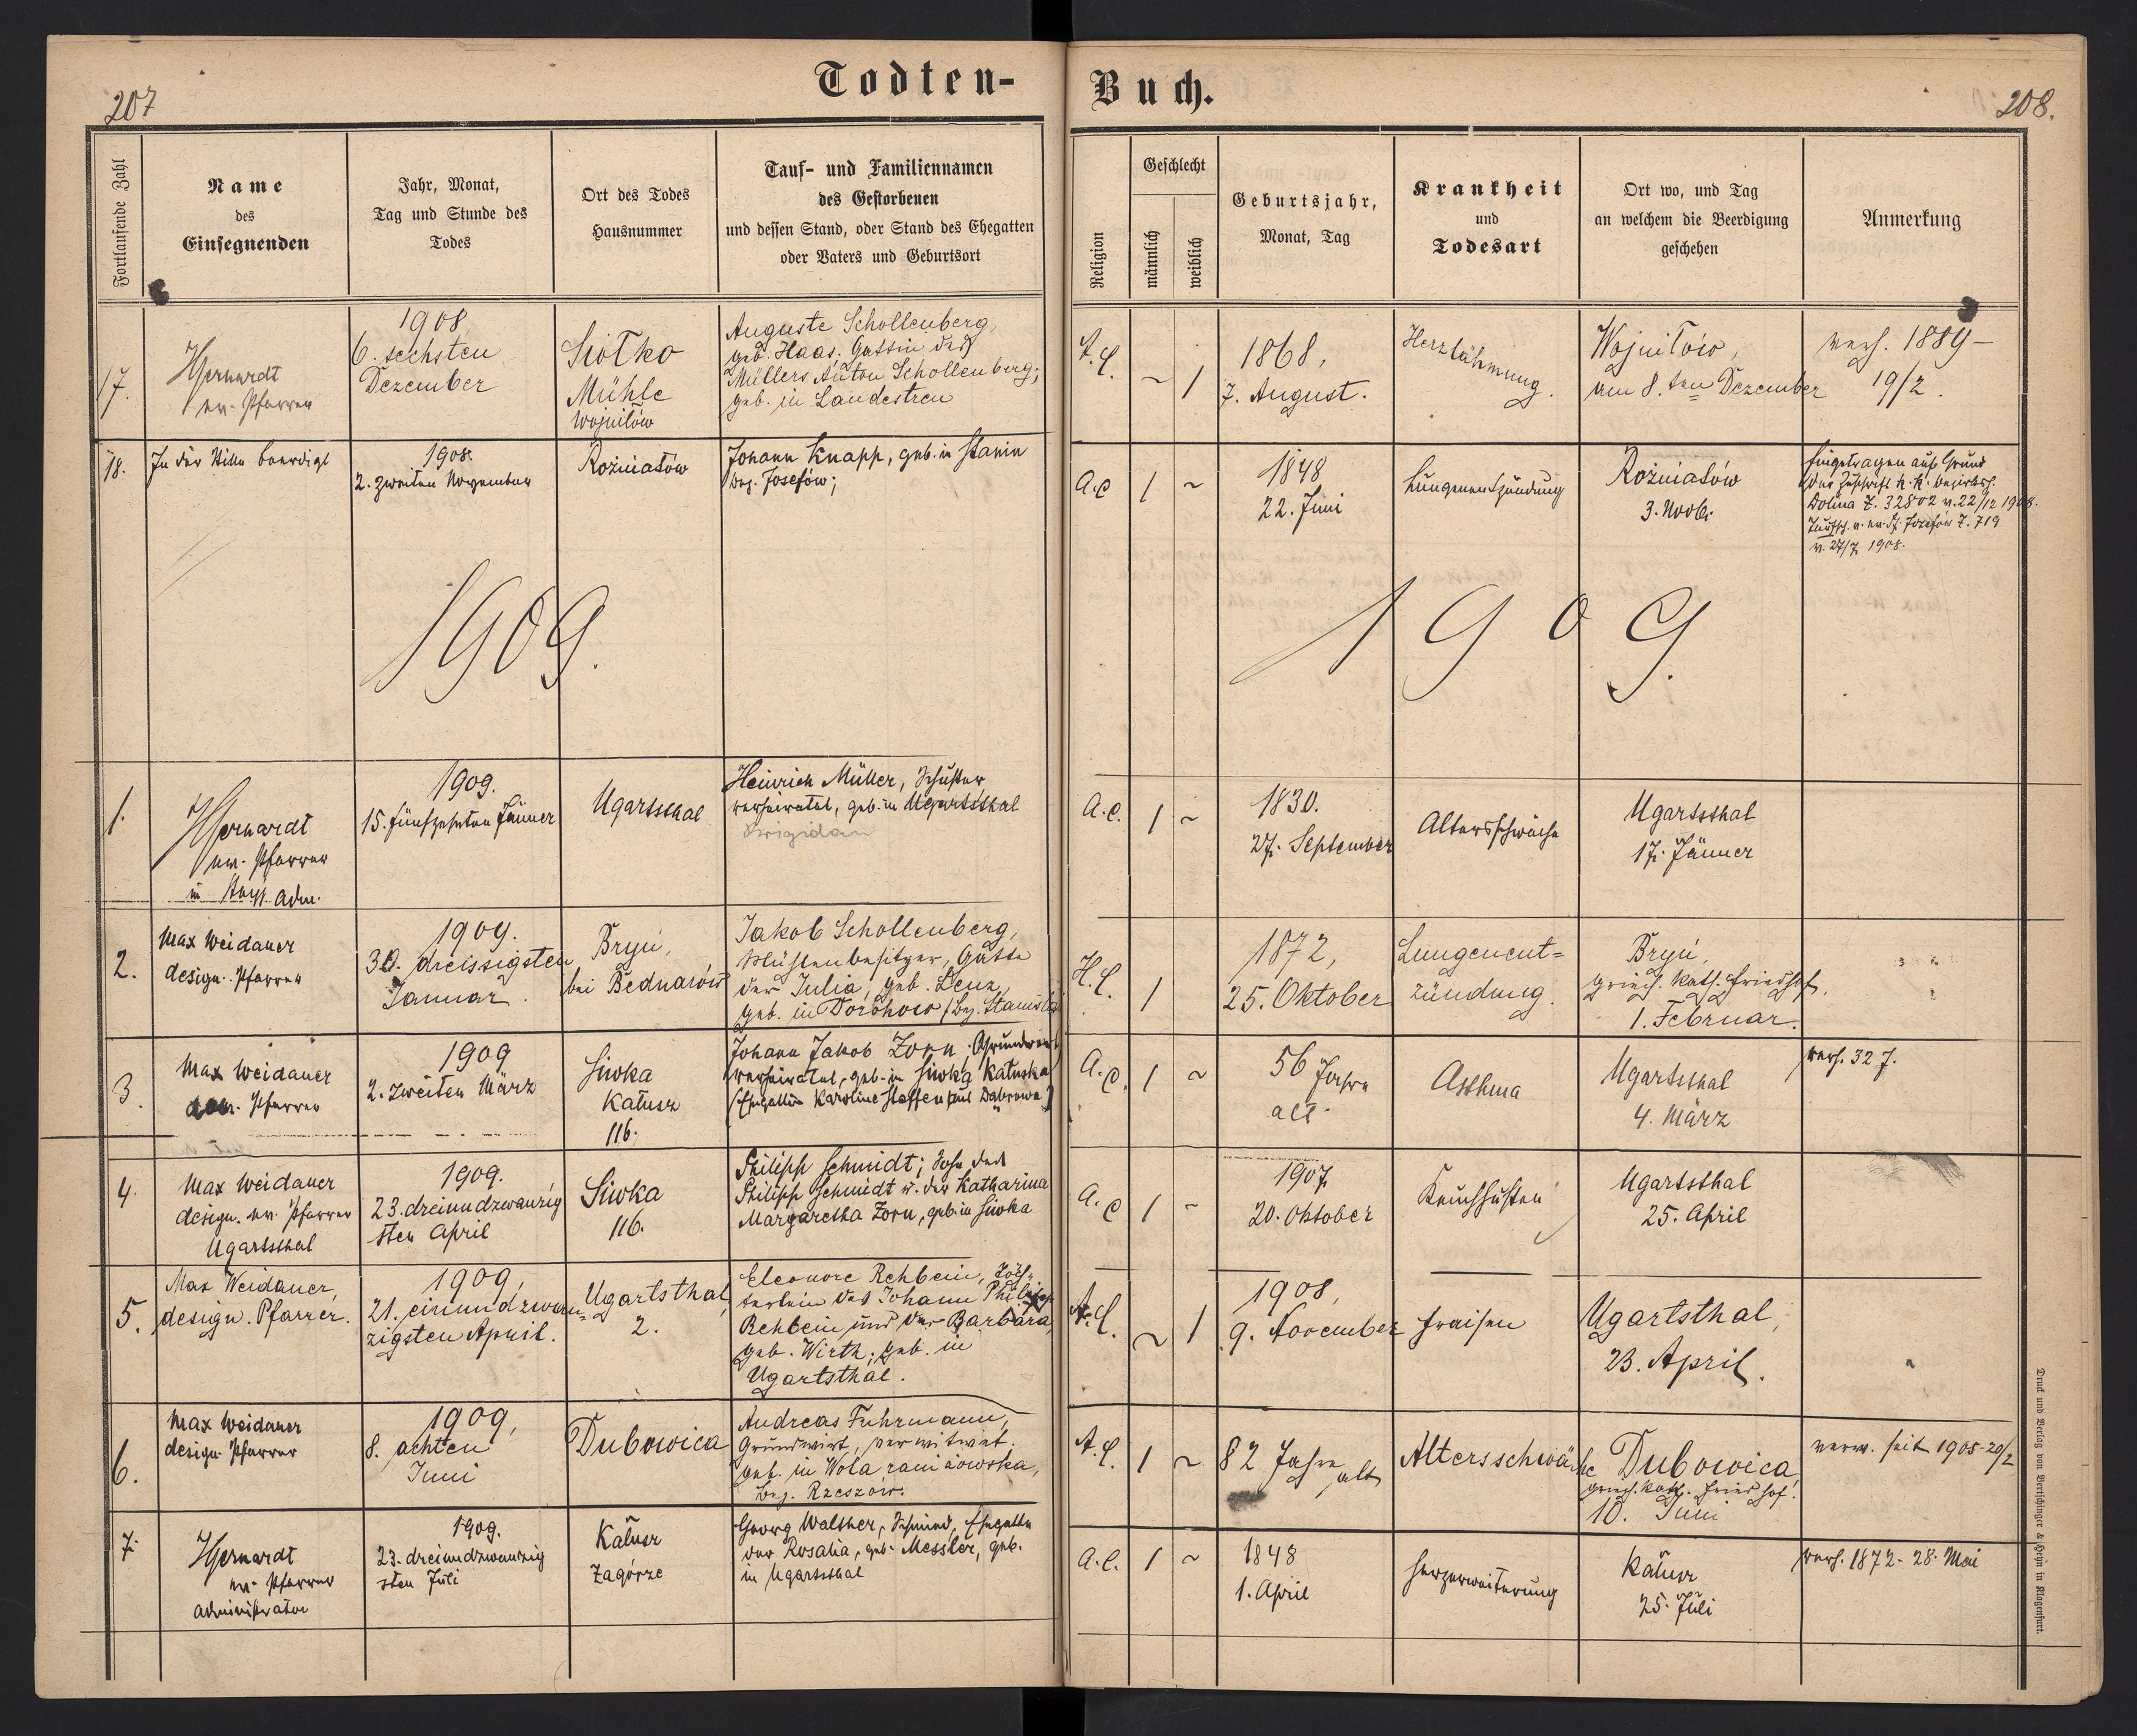 Todten-
207
Fortlaufende Zahl
Name
des
Einsegnenden
Jahr, Monat,
Tag und Stunde des
Todes
Ort des Todes
Hausnummer
Tauf- und Familiennamen
des Gestorbenen
und dessen Stand, oder Stand des Ehegatten
oder Vaters und Geburtsort
17.
ev. Pfarrer
1908
6. sechsten
Dezember
Siółko
Mühle
Wojniłów
Auguste Schollenberg,
geb. Haas; Gattin des
Müllers Anton Schollenberg;
geb. in Landestreu
18.
In der Stille beerdigt
1908.
2. zweiten November
Rożniatów
Johann Knapp, geb. in Stanin
Bez. Josefów;
1909.
1.
ev. Pfarrer
in Stryj Adm.
1909.
15. fünfzehnten Jänner
Ugartsthal
Heinrich Müller, Schuster
verheiratet, geb. in Ugartsthal
2.
Max Weidauer
design. Pfarrer
1909.
30. dreissigsten
Januar.
Bryń,
bei Bednarów
Jakob Schollenberg,
Mühlenbesitzer, Gatte
der Julia, geb. Lenz,
geb. in Dorohow (Bez. Stanislau
3.
Max Weidauer
Pfarrer
1909
2. zweiten März
Siwka
Kałusz
116.
Johann Jakob Zorn, Grundwirt
verheiratet, geb. in Siwka Kałuska
(Ehegattin Karoline Steffen aus Dąbrowa)
4.
Max Weidauer
design. ev. Pfarrer
Ugartsthal
1909.
23. dreiundzwanzig
sten April
Siwka
116.
Philipp Schmidt; Sohn des
Philipp Schmidt u. der Katharina
Margaretha Zorn, geb. in Siwka
5.
Max Weidauer,
design. Pfarrer.
1909,
21. einundzwan-
zigsten April.
Ugartsthal,
2.
Eleonore Rehbein, Töch-
terlein des Johann Philipp
Rehbein und der Barbara,
geb. Wirth; geb. in
Ugartsthal.
6.
Max Weidauer
design. Pfarrer
1909,
8. achten
Juni
Dubowica
Andreas Fuhrmann,
Grundwirt, verwitwet.
geb. in Wola
Bez. Rzeszow.
7.
ev. Pfarrer
Administrator
1909.
23. dreiundzwanzig
sten Juli
Kałusz
Zagórze
Georg Walther, Schmied, Ehegatte
der Rosalia, geb. Messler, geb.
in Ugartsthal
Buch.
208.
Religion
Geschlecht
männlich
weiblich
Geburtsjahr,
Monat, Tag
Krankheit
und
Todesart
Ort wo, und Tag
an welchem die Beerdigung
geschehen
Anmerkung
A.C.
~ 1
1868,
7. August.
Herzlähmung.
Wojniłów,
am 8. ten Dezember
verh. 1889 –
19/2.
A.C
1 ~
1848
22. Juni
Lungenentzündung
Rożniatów
3. Novb.
Eingetragen auf Grund
der Zuschrift k. k. Bezirksh.
Dolina Z. 32802 v. 22/12 1908.
v. 27/7 1908.
1909.
A.C.
1 ~
1830.
27. September
Altersschwäche
Ugartsthal
17. Jänner
H.C.
1
1872,
25. Oktober
Lungenent-
zündung.
Bryń,
griech. kath. Friedhof,
1. Februar.
A.C.
1 ~
56 Jahre
alt.
Asthma
Ugartsthal
4. März
verh. 32 J.
A.C
1 ~
1907
20. Oktober
Keuchhusten
Ugartsthal
25. April
A.C.
~ 1
1908,
9. November
Fraisen
Ugartsthal,
23. April.
A.C.
1 ~
82 Jahre
alt
Altersschwäche
Dubowica,
griech. kath. Friedhof.
10. Juni
verw. seit 1905-20/2
A.C.
1 ~
1848
1. April
Herzerweiterung
Kałusz
25. Juli
verh. 1872- 28. Mai
Druck und Verlag von Bertschinger & Heyn in Klagenfurt.